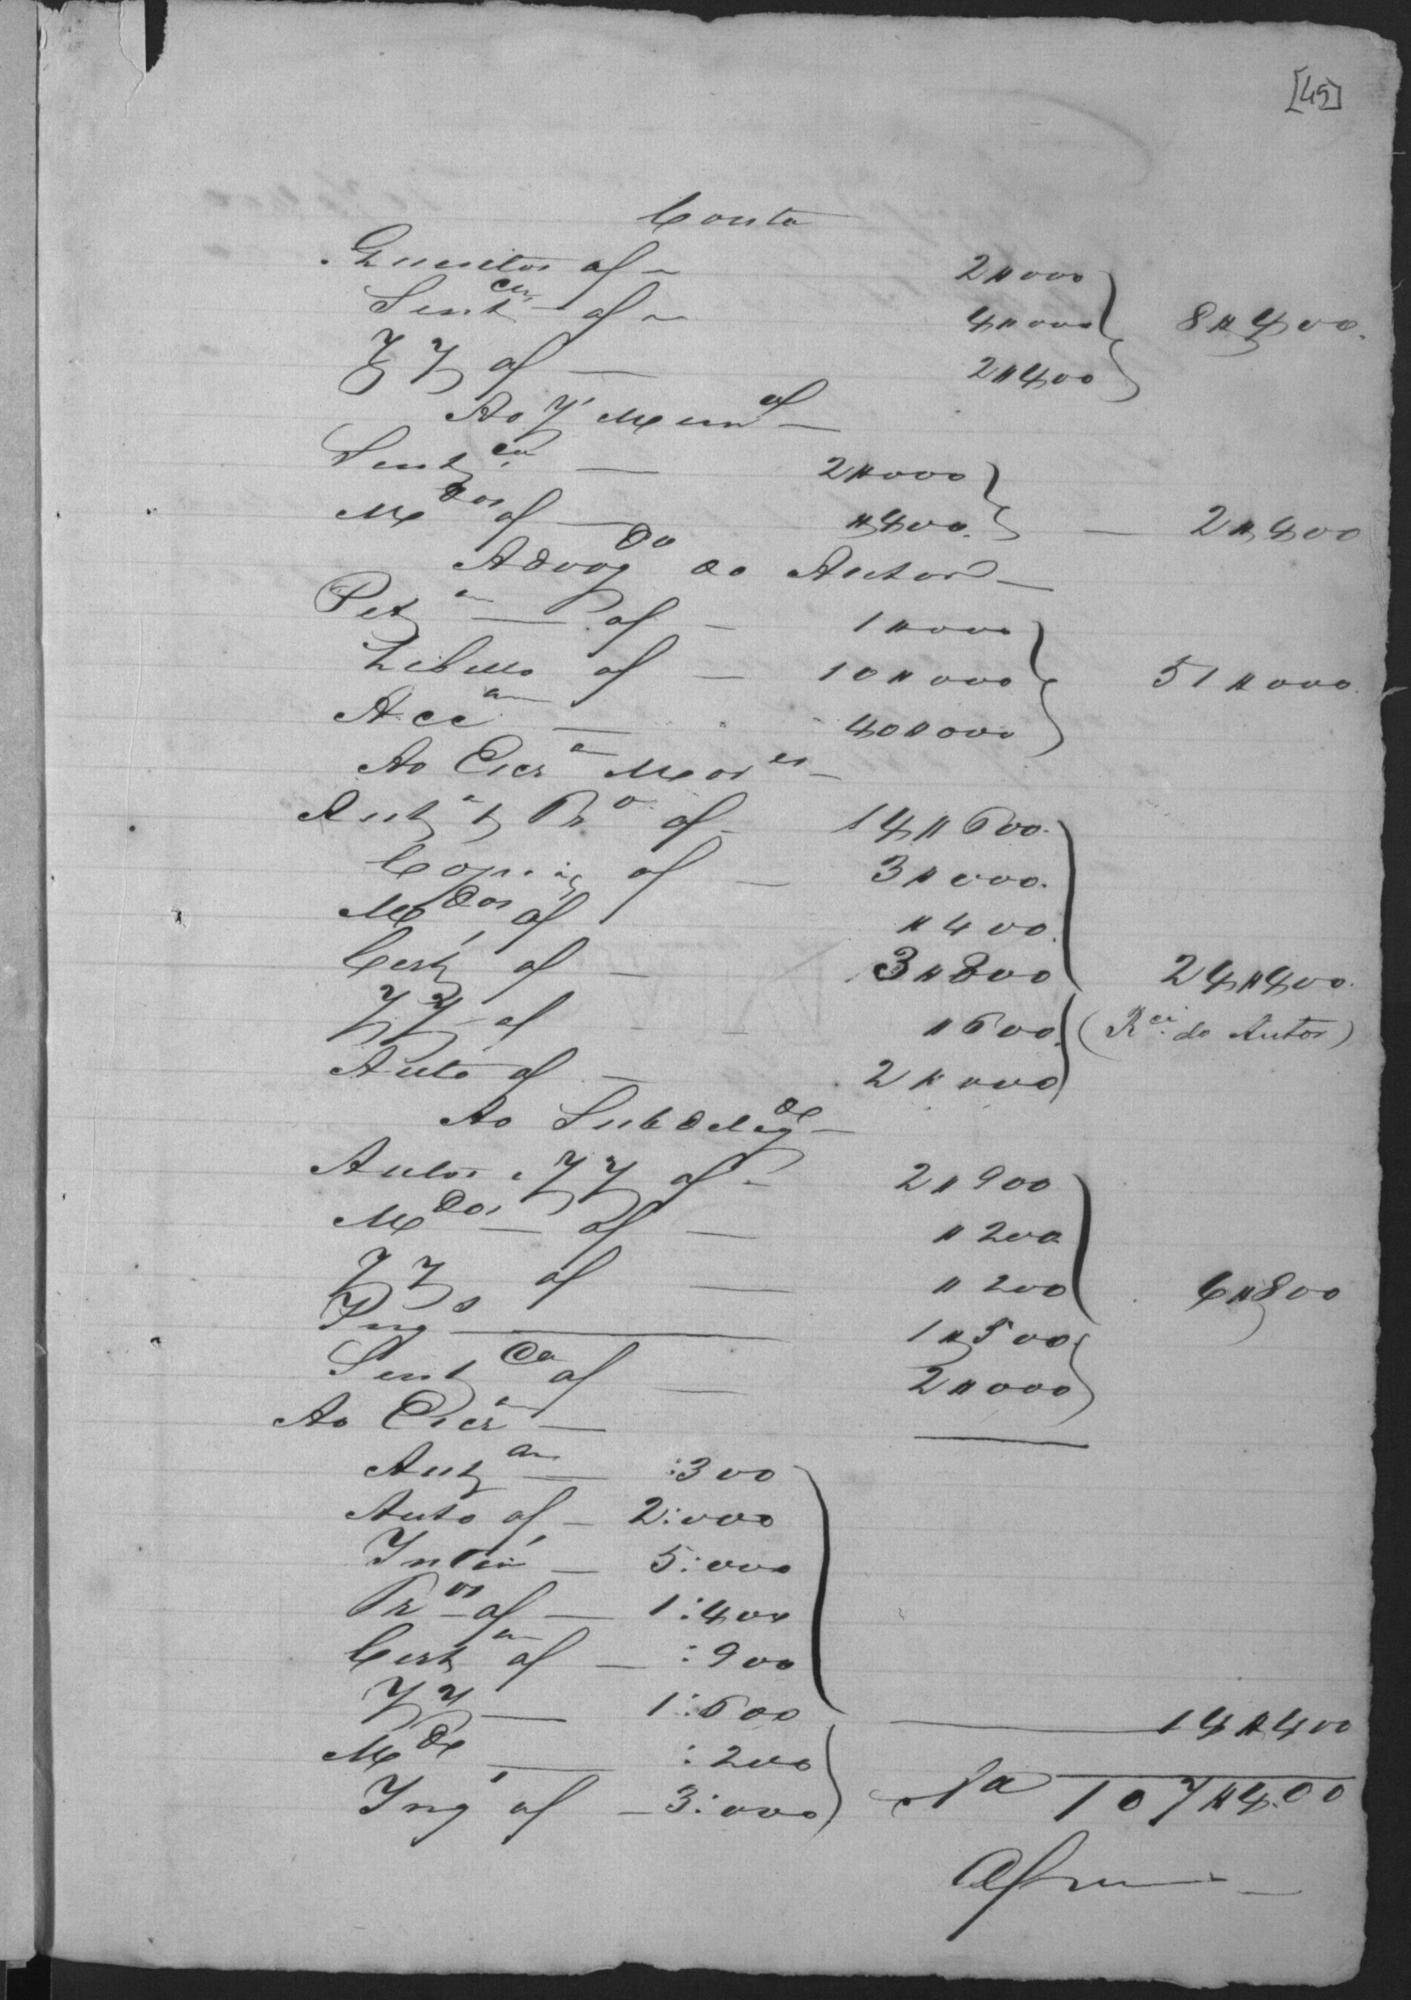 [45]
Conta
Quesitos af 2#000
Sent cas af 4#000 8#400
JJ af 2#400
Ao J Mun al
Sent ca 2#000
M dos af #400 2#400
Advog do do Autor
Pet am af 1#000
Libello af 10#000 51#000
Acc am 40#000
Ao Escr am
Aut af 14#600
af 3#000
M dos af #400
Cert af 3#800 24#400
JJ af #600 (R ci do Autor)
Auto af 2#000
Ao Subdeleg de
Autos JJ af 2#900
M dos af #200
JJ af #200 6#800
Inq 1#500
Sent ca af 2#000
Ao Escr am
Aut am :300
Auto af 2:000
5:000
af 1:400
Cert am af :900
JJ 1:600 14#400
M de :200
Inq af 3:000 107#400